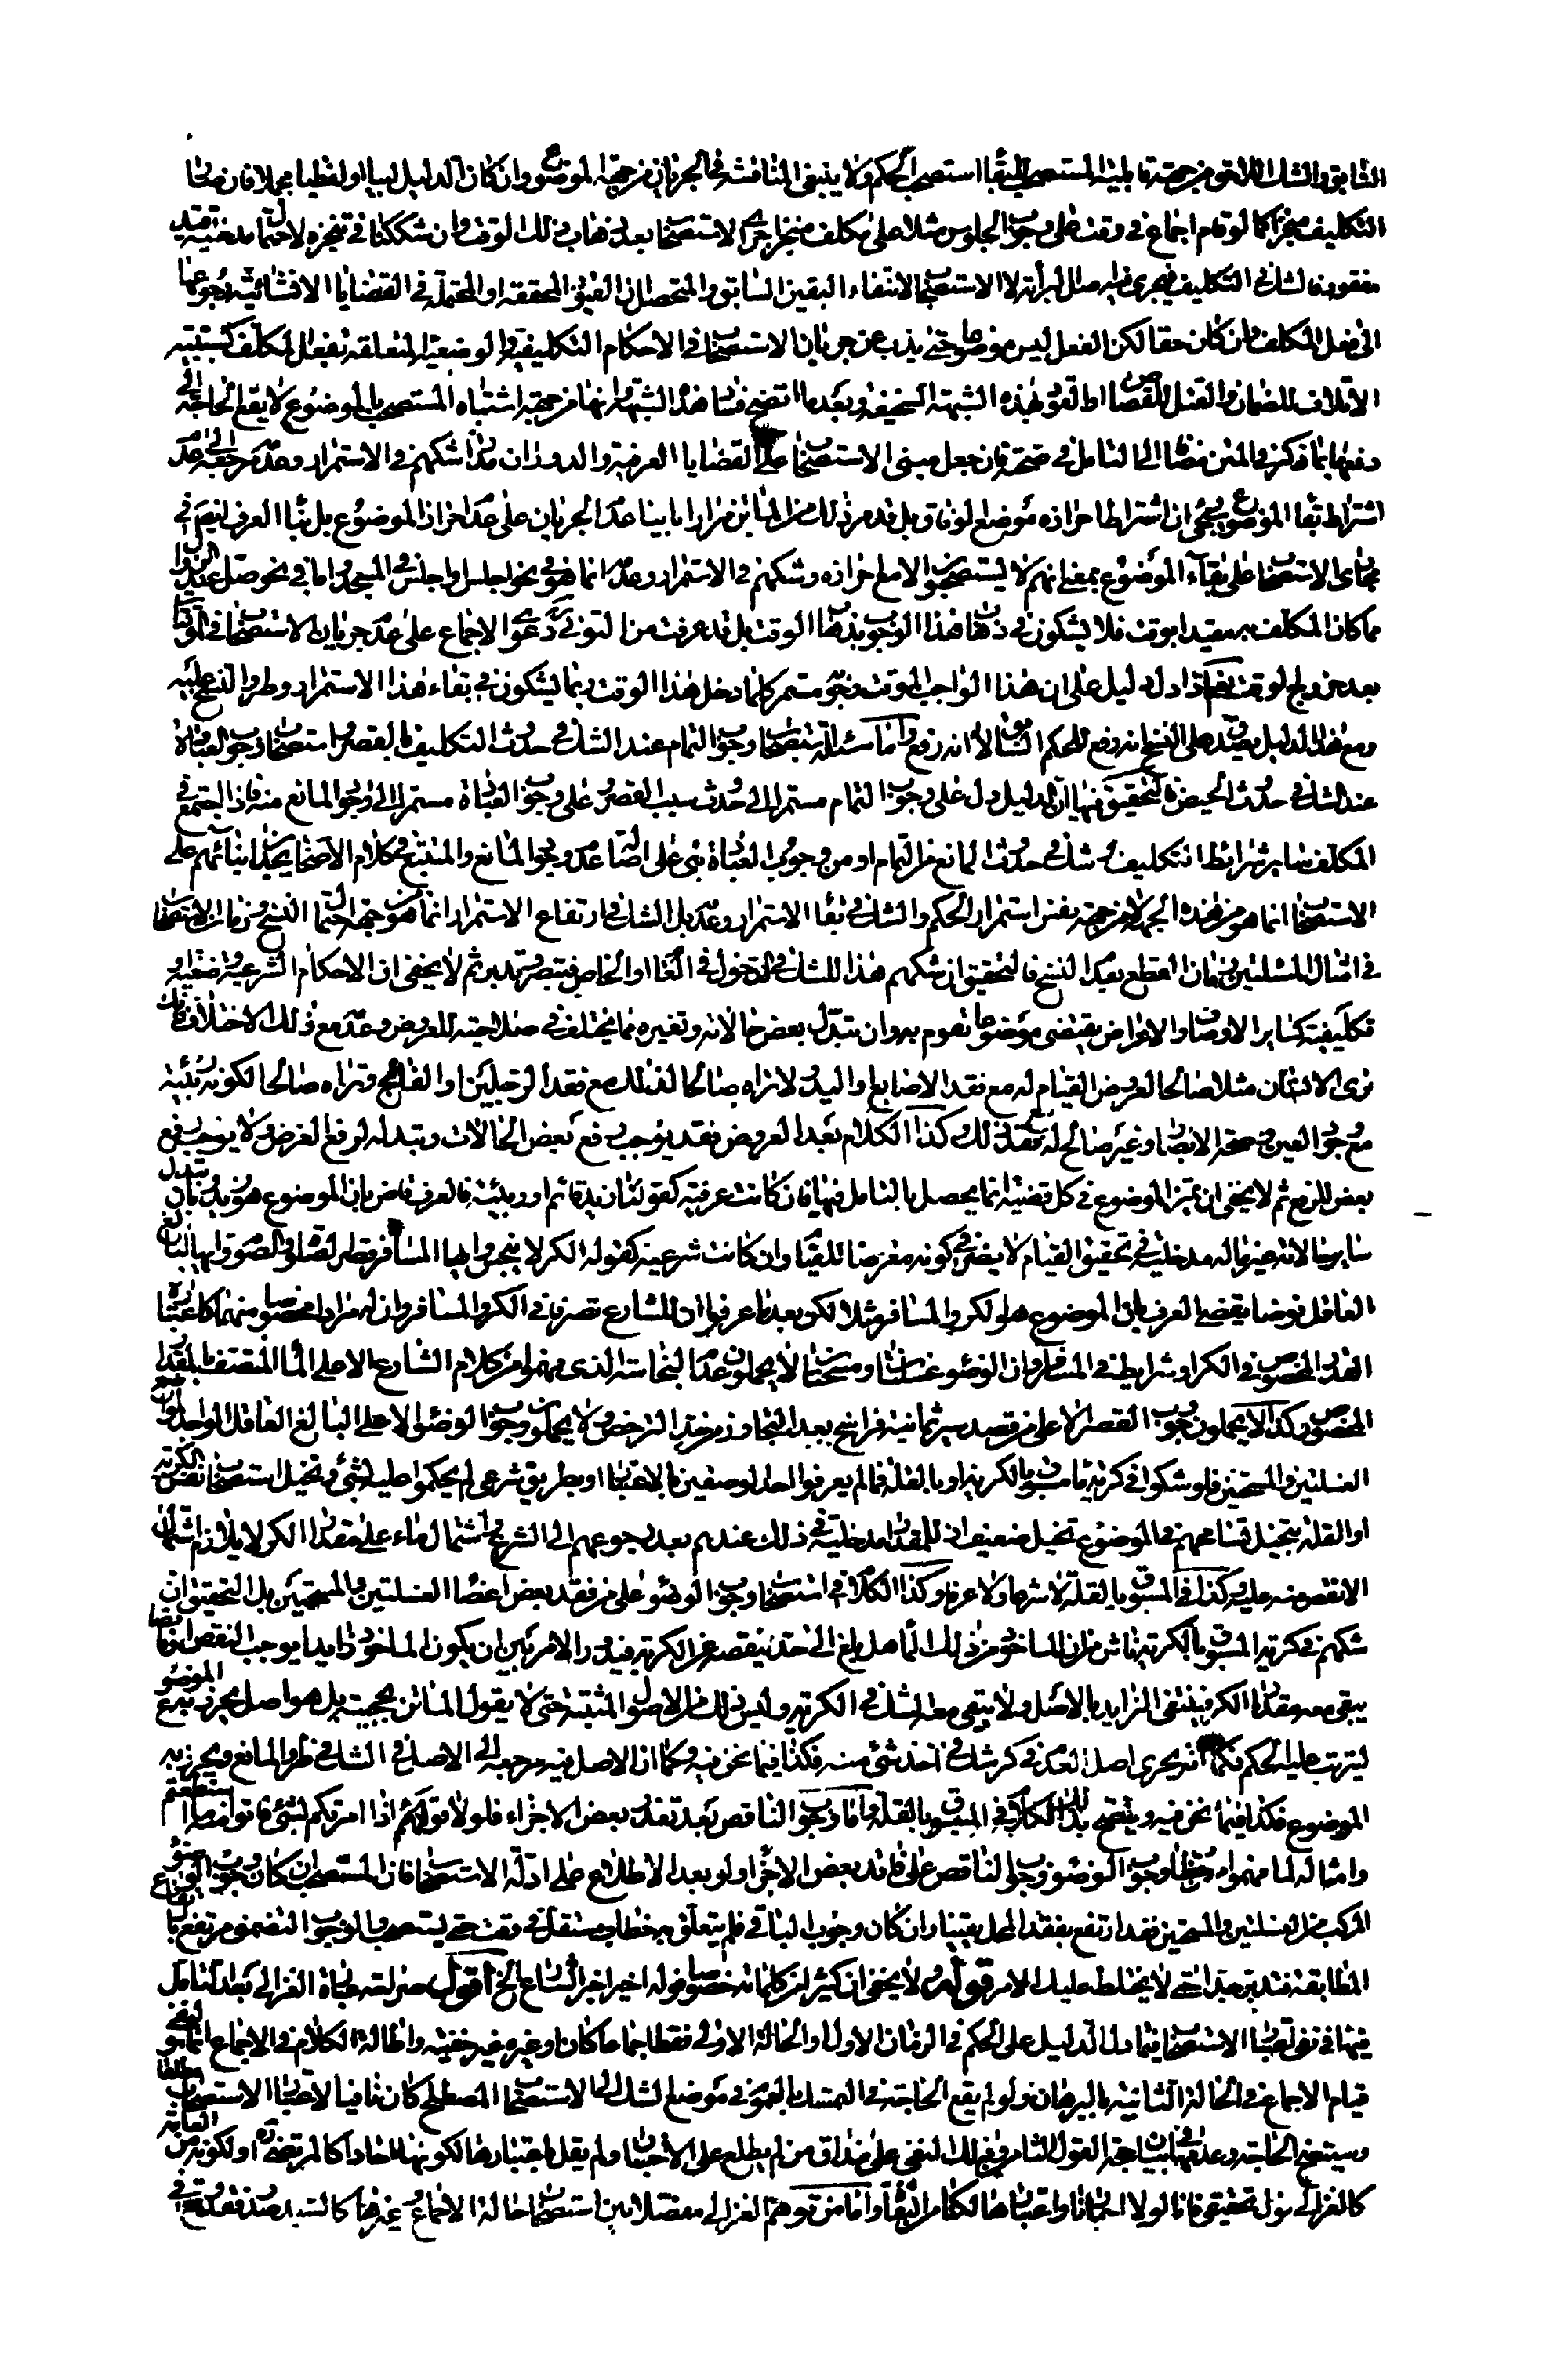 السابق والشك اللاحق من جهة قابلية المستصحب للبقاء استصحب الحكم ولا ينبغى المناقشة فى الجريان من جهة الموضوع وان كان الدليل لبيا او لفظيا مجملا فان
التكليف منجزا كما لو قام اجماع فى وقت على وجوب الجلوس مثلا على مكلف منجزا جرى الاستصحاب بعد ذهاب ذلك الوقت وان شككنا فى تنجزه لاحتمال مدخلية
الشك فى التكليف فيجرى فيه اصالة البرائة لا الاستصحاب لانتفاء اليقين السابق والمتحصل ان القيود المحققة او المحتملة فى القضايا الانشائية رجوعها
الى فعل المكلف وان كان حقا لكن الفعل ليس موضوعا حتى يذب عن جريان الاستصحاب فى الاحكام التكليفية والوضعية المتعلقة بفعل المكلف كسببية
الاتلاف للضمان والقتل للقصاص لهذه الشبهة السخيفة وبعد ما اتضح فساد هذه الشبهة وانها من جهة اشتباه المستصحب بالموضوع لا يقع الحاجة الى
دفعها بما ذكر فى المتن مضافا الى التامل فى صحته فان جعل مبنى الاستصحاب على القضايا العرفية والدوران مدار شكهم فى الاستمرار وعدمه مرجعه الى عدم
اشتراط بقاء الموضوع ويجئ ان اشتراط احرازه موضع الوفاق بل قد مر ذلك من الماتن مرارا بانيا عدم الجريان على عدم احراز الموضوع بل بناء العرف ايضا فى
مجارى الاستصحاب على بقاء الموضوع بمعنى انهم لا يستصحبون الا مع احرازه وشكهم فى الاستمرار وعدمه انما هو فى نحو اجلس واجلس فى المسجد واما فى نحو صل عند الزوال
مما كان المكلف به مقيدا بوقت فلا يشكون فى ذهاب هذا الوجوب بذهاب الوقت بل قد عرفت من التونى دعوى الاجماع على عدم جريان الاستصحاب فى الموقت
بعد خروج الوقت نعم اذا دل دليل على ان هذا الواجب الموقت وجوبه مستمر كلما دخل هذا الوقت ربما يشكون فى بقاء هذا الاستمرار وطرو النسخ عليه
ومع هذا الدليل يصدق على النسخ انه رفع للحكم الثابت لا انه رفع واما مسئلة استصحاب وجوب التمام عند الشك فى حدوث التكليف بالقصر واستصحاب وجوب العبادة
عند الشك فى حدوث الحيض فالتحقيق فيها ان الدليل دل على وجوب التمام مستمرا الى حدوث سبب القصر وعلى وجوب العبادة مستمرا الى وجود المانع منه فاذا اجتمع فى
المكلف سائر شرائط التكليف وشك فى حدوث المانع من التمام او من وجوب العبادة بنى على اصالة عدم وجود المانع والمتتبع فى كلام الاصحاب يجد ابنائهم على
الاستصحاب انما هو من هذه الجهة لا من جهة نفس استمرار الحكم والشك فى بقاء الاستمرار وعدمه بل الشك فى ارتفاع الاستمرار انما هو من جهة احتمال النسخ فى زمان الاستصحاب
فى امثال المسئلتين زمان القطع بعدم النسخ فالتحقيق ان شكهم هذا للشك فى الدخول فى العام او الخاص فتبصر وتدبر ثم لا يخفى ان الاحكام الشرعية وضعية او
تكليفية كسائر الاوصاف والاعراض يقتضى موضوعا تقوم به وان تبدل بعض حالاته وتغيره مما يختلف فى صلاحيته للعروض وعدمه مع ذلك الاختلاف فانك
ترى الانسان مثلا صالحا لعروض القيام له مع فقد الاصابع او اليد ولا تراه صالحا لذلك مع فقد الرجلين او الفالج وتراه صالحا لكونه
مع وجود العين وصحة الابصار وغير صالح له مع فقد ذلك وكذا الكلام بعد العروض فقد يوجب رفع بعض الحالات وتبدله لرفع العرض ولا يوجب رفع
بعض للرفع ثم لا يخفى ان تميز الموضوع فى كل قضية انما يحصل بالتامل فيها فان كانت عرفية كقولنا زيد قائم او فالعرف قاض بان الموضوع هو زيد وان تبدل
سائر حالاته غير ما له مدخلية فى تحقيق القيام لا يضر فى كونه معروضا للقيام وان كانت شرعية كقوله الكر لا ينجس وايها المسافر قصر الصلوة والصوم وايها البالغ
العاقل توضا يقضى العرف بان الموضوع هو الكر والمسافر مثلا لكن بعد ما عرفوا ان للشارع تصرفا فى الكر والمسافر وان له مرادا مخصوصا منهما كاعتباره
القدر المخصوص فى الكر وشرايط فى المسافر وان الوضوء غسلتان ومسحتان لا يحملون عدم النجاسة الذى فهموا من كلام الشارع الا على الماء المتصف بالقدر
المخصوص وكذا لا يحملون وجوب القصر الا على من قصد سير ثمانية فراسخ بعد التجاوز من حد الترخص ولا يحملون وجوب الوضوء الا على البالغ العاقل الواجد
الغسلتين والمسحتين فلو شكوا فى كرية ماء مسبوق بالكرية او بالقلة فما لم يعرفوا احد الوصفين بالاعتبار او بطريق شرعى لم يحكموا عليه بشئ وتخيل استصحاب نفس الكرية
او القلة بتخيل تسامحهم فى الموضوع تخيل ضعيف اذ للمقدار مدخلية فى ذلك عندهم بعد رجوعهم الى الشرع واشتمال الماء على مقدار الكر لا يلازم اشتمال
الانقص منه عليه وكذا فى المسبوق بالقلة لا شرعا ولا عرفا وكذا الكلام فى استصحاب وجوب الوضوء على من فقد بعض اعضاء الغسلتين والمسحتين بل التحقيق ان
شكهم فى كرية المسبوق بالكرية ناش من ان الماخوذ من ذلك الماء هل بلغ الى حد ينقصه عن الكرية فيدور الامر بين ان يكون الماخوذ زايدا يوجب النقص او ناقصا
يبقى معه مقدار الكر فينتفى الزايد بالاصل ولا يبقى معه الشك فى الكرية وليس ذلك من الاصول المثبتة حتى لا يقول الماتن بحجيته بل هو اصل يحرز به الموضوع
ليترتب عليه الحكم فكما انه يجرى اصل العدم فى كر شك فى اخذ شئ منه فكذا فيما نحن فيه وكما ان الاصل فيه مرجعه الى الاصل فى الشك فى طرو المانع ويحرز به
الموضوع فكذا فيما نحن فيه ويتضح بذلك الكلام فى المسبوق بالقلة واما وجوب الناقص بعد تعذر بعض الاجزاء فلولا قولهم اذا امرتكم بشئ فاتوا منه ما استطعتم
وامثاله لما فهموا وجوب الوضوء ووجوب الناقص على فاقد بعض الاجزاء ولو بعد الاطلاع على ادلة الاستصحاب فان المستصحب ان كان وجوب الوضوء
المركب من الغسلتين والمسحتين فقد ارتفع بفقد المحل يقينا وان كان وجوب الباقى فلم يتعلق به خطاب مستقل فى وقت حتى يستصحب والوجوب التضمنى مرتفع بارتفاع
المطابقة فتدبر جدا حتى لا يختلط عليك الامر قوله ره لا يخفى ان كثيرا من كلماته خصوصا قوله اخيرا اجراء الشارع الخ اقول صراحة عبارة الغزالى بعد التامل
فيها فى نفى اعتبار الاستصحاب فيما دل الدليل على الحكم فى الزمان الاول او الحالة الاولى فقط اجماعا كان او غيره غير خفية واطالة الكلام فى الاجماع انما هو لنفى
قيام الاجماع فى الحالة الثانية بالبرهان ولو لم يقع الحاجة فى التمسك بالعموم فى موضع الشك الى الاستصحاب المصطلح كان نافيا لاعتبار الاستصحاب مطلقا
وسيتضح الحاجة وعدمها فى بيان حجة القول الثامن وفى ذلك لنفى على مذاق من لم يطلع على الاخبار ولم يقل باعتبارها لكونها احادا كالمرتضى ره او لكونه من العامة
كالغزالى قول تحقيقى فانا لولا اخبارنا واعتبارها لكنا من النفاة واما من توهم الغزالى مفصلا بين استصحاب حال الاجماع وغيرها كالسيد صدر